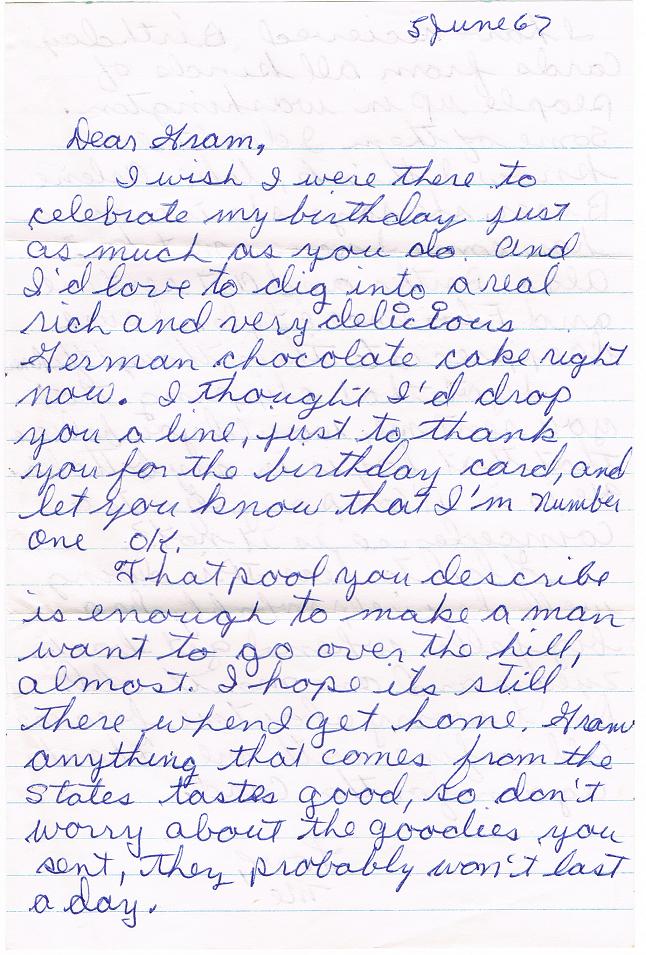 5 June 67
Dear Gram,
I wish I were there to
celebrate my birthday just
as much as you do. And
I'd love to dig into a real
rich and very delicious
German chocolate cake right
now. I thought I'd drop
you a line, just to thank
you for the birthday card, and
let you know that I'm number
one OK.
That pool you describe
is enough to make a man
want to go over the hill,
almost. I hope its still
there when I get home. Gram
anything that comes from the
States tastes good, so don't
worry about the goodies you
sent, they probably won't last
a day.